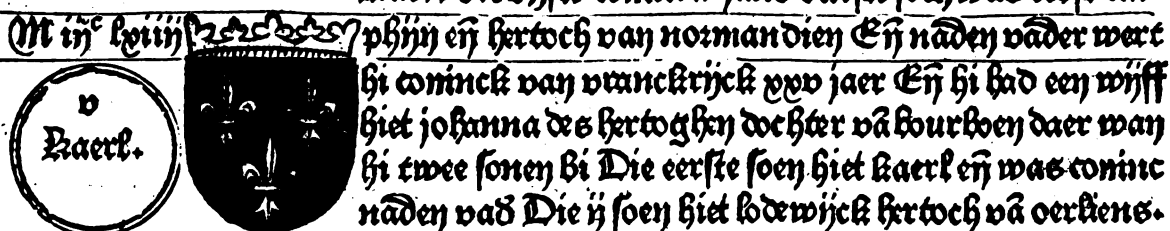 M iijᶜ lxiiij
v
Kaerl.
phijn eñ hertoch van normandien Eñ nadē vader wert
hi coninck van vranckrijck xxv jaer Eñ hi had een wijff
hiet johanna des hertoghen dochter vā bourboen daer wan
hi twee sonen bi Die eerste soen hiet kaerl eñ was coninc
nāden vad Die ij soen hiet lodewijck hertoch vā oerliens.